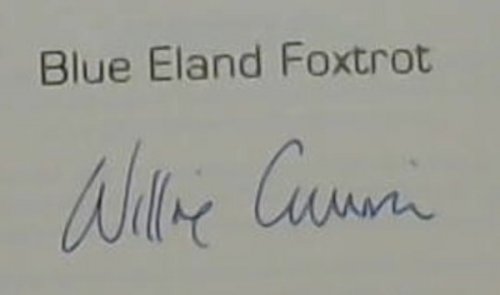 Blue Eland Foxtrot
Willie